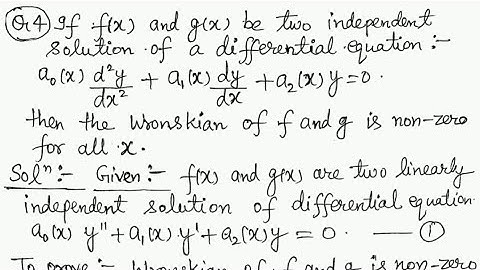 Q.4 If f(x) and g(x) be two independent
solution of a differential equation :-
a₀(x) d²y/dx² + a₁(x) dy/dx + a₂(x) y = 0.
then the wronskian of f and g is non-zero
for all x.
Solⁿ:- Given:- f(x) and g(x) are two linearly
independent solution of differential equation.
a₀(x) y" + a₁(x) y' + a₂(x) y = 0. —— ①
To prove:- Wronskian of f and g is non-zero